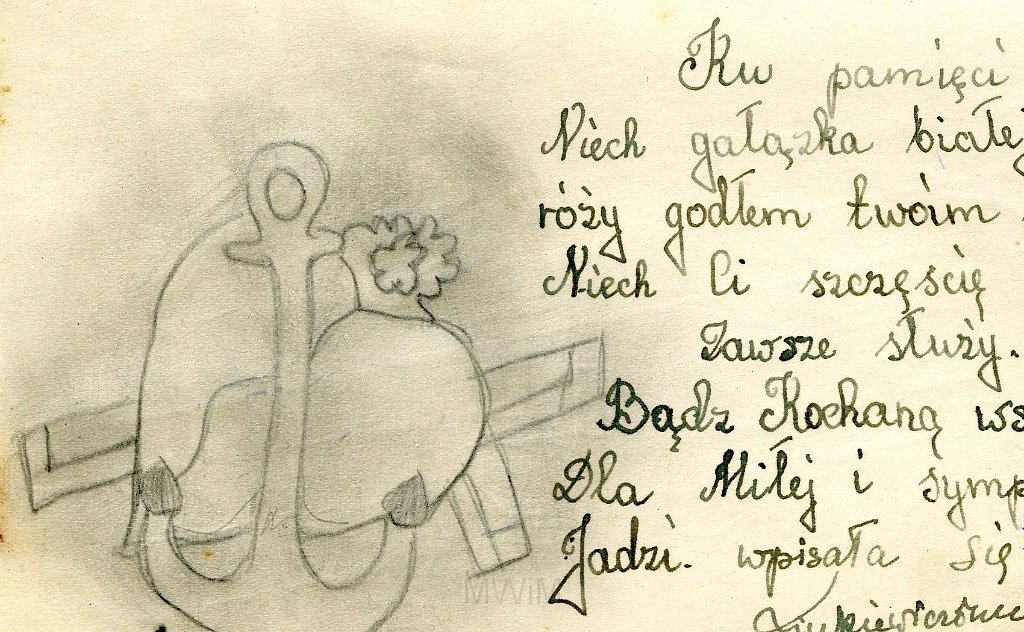 Ku pamięci
Niech gałązka białej
róży godłem twóim
Niech Ci szczęścię
zawsze służy.
Bądz Kochaną ws
Dla Miłej i symp
Jadzi. wpisała się
MWiM